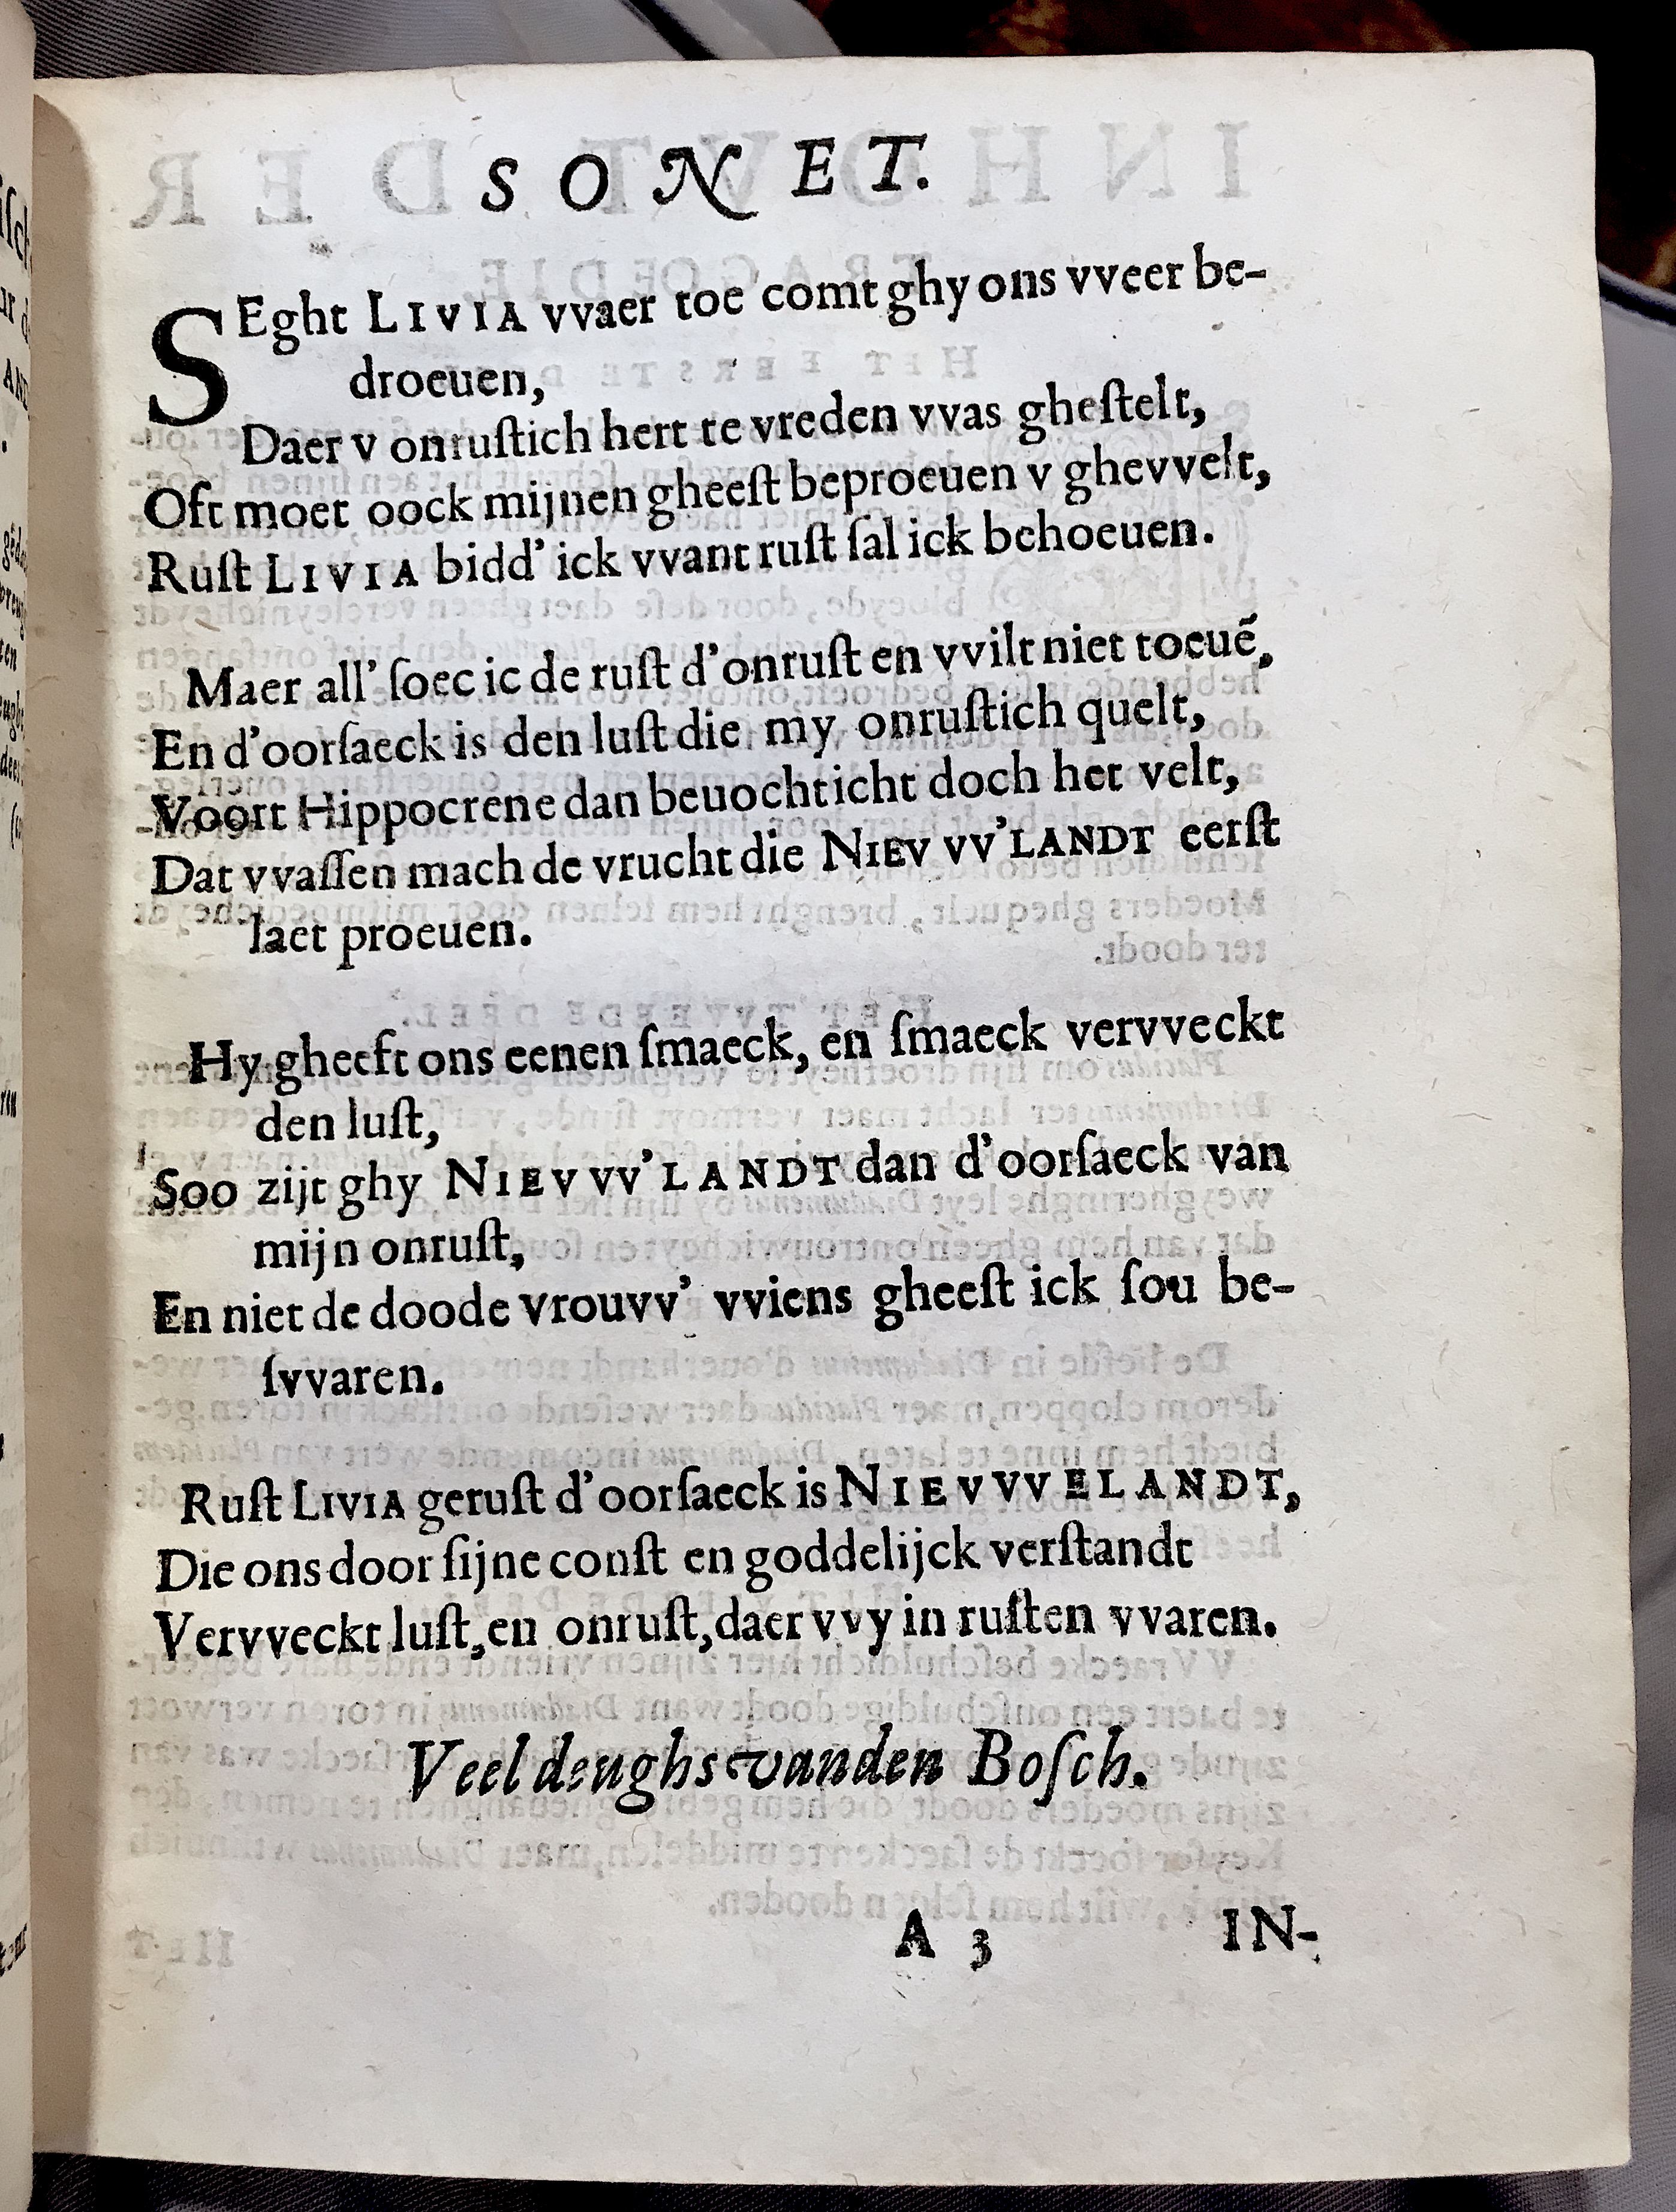 SONET.
SEght LIVIA vvaer toe comt ghy ons vveer be-
droeuen,
Daer v onruſtich hert te vreden vvas gheſtelt,
Oft moet oock mijnen gheeſt beproeuen v ghevvelt,
Ruſt LIVIA bidd' ick vvant ruſt ſal ick behoeuen.
Maer all' ſoec ic de ruſt d'onruſt en vvilt niet toeuē,
En d'oorſaeck is den luſt die my onruſtich quelt,
Voort Hippocrene dan beuochticht doch het velt,
Dat vvaſſen mach de vrucht die NIEVVV'LANDT eerſt
laet proeuen.
Hy gheeft ons eenen ſmaeck, en ſmaeck vervveckt
den luſt,
Soo zijt ghy NIEVVV'LANDT dan d'oorſaeck van
mijn onruſt,
En niet de doode vrouvv' vviens gheeſt ick ſou be-
ſvvaren.
Ruſt LIVIA geruſt d'oorſaeck is NIEVVVELANDT,
Die ons door ſijne conſt en goddelijck verſtandt
Vervveckt luſt, en onruſt, daer vvy in ruſten vvaren.
Veel deughs vanden Boſch.
A 3 IN-